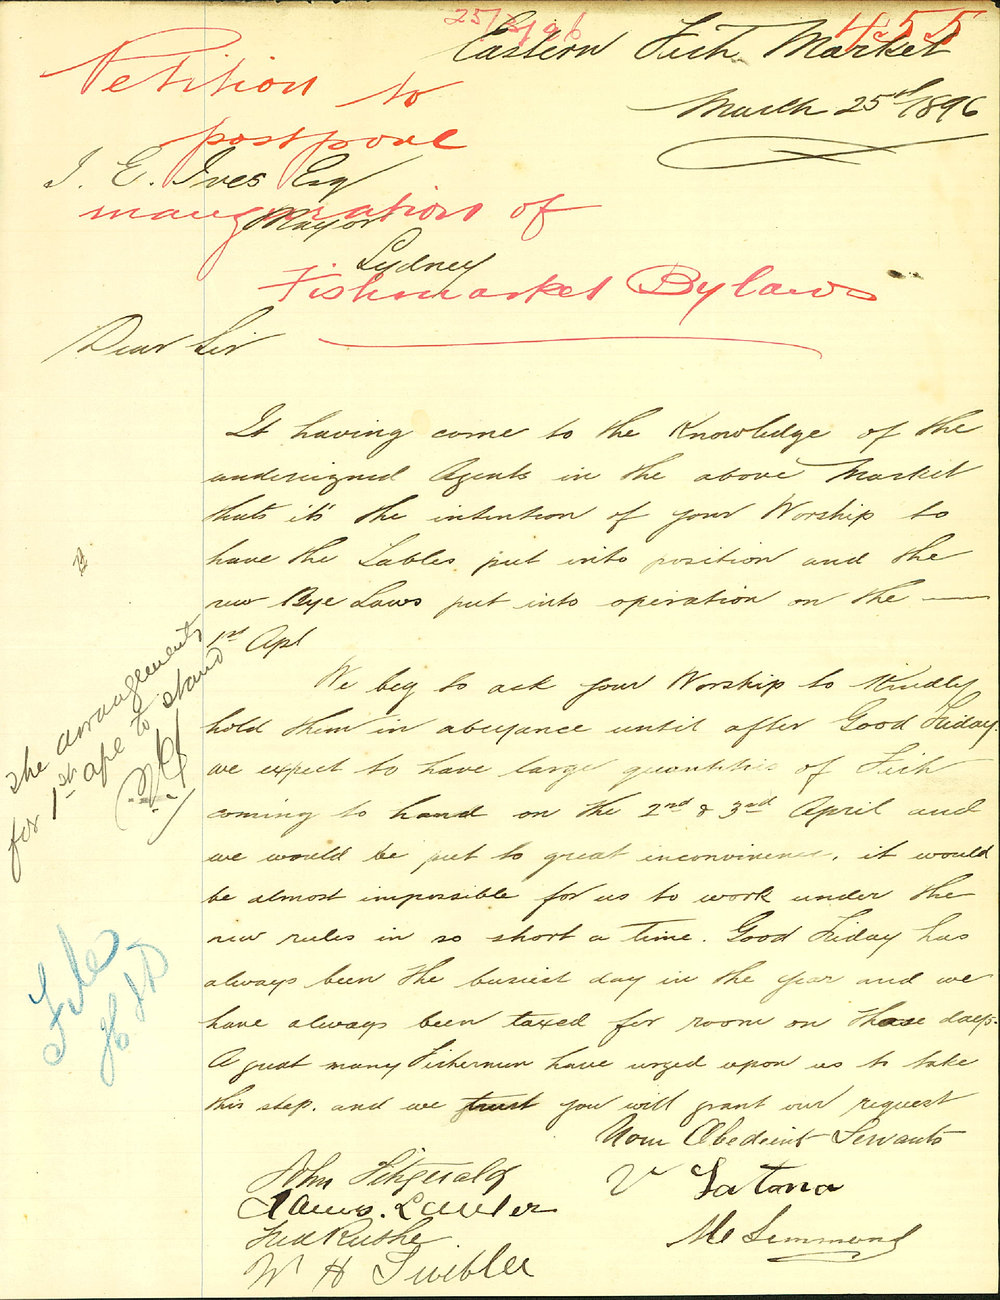 25/3/96
455
Eastern Fish Market
March 25th 1896
Petition to
postpone
inauguration of
Fishmarket Bylaws
I. E. Ives Esq
Mayor
Sydney
Dear Sir
It having come to the Knowledge of the
undersigned Agents in the above Market
thats it's the intention of your Worship to
have the Tables put into position and the
new Bye Laws put into operation on the
1st Apl
We beg to ask your Worship to Kindly
hold them in abeyance until after Good Friday.
we expect to have large quantities of Fish
coming to hand on the 2nd & 3rd April and
we would be put to great inconvinence. it would
be almost impossible for us to work under the
new rules in so short a time. Good Friday has
always been the busiest day in the year and we
have always been taxed for room on those days.
A great many Fishermen have urged upon us to take
this step. and we trust you will grant our request
Your Obedient Servants
John Fitzgerald
V Latona
James. Lawler
W H
The arrangements
for 1st apl to stand
File